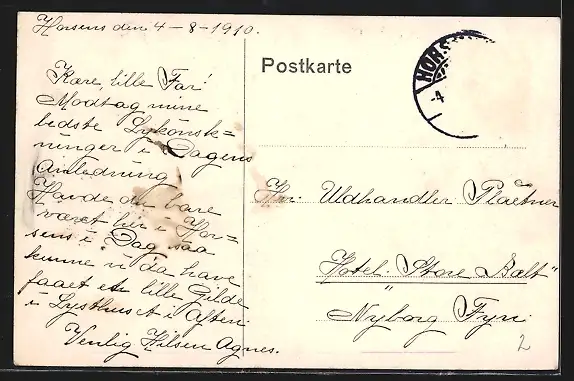 Horsens den 4-8-1910.
Kære, lille Far!
Modtag mine
bedste Lykønsk=
ninger i Dagens
Anledning
Havde du bare
været her i Hor=
sens i Dag saa
kunne vi da have
faaet et lille Gilde
i Lysthuset i Aften
Venlig Hilsen Agnes.
Postkarte
HORS
-4
Hr. Uldhandler Plaetner
Hotel "Store Bælt"
Nyborg Fyn
2